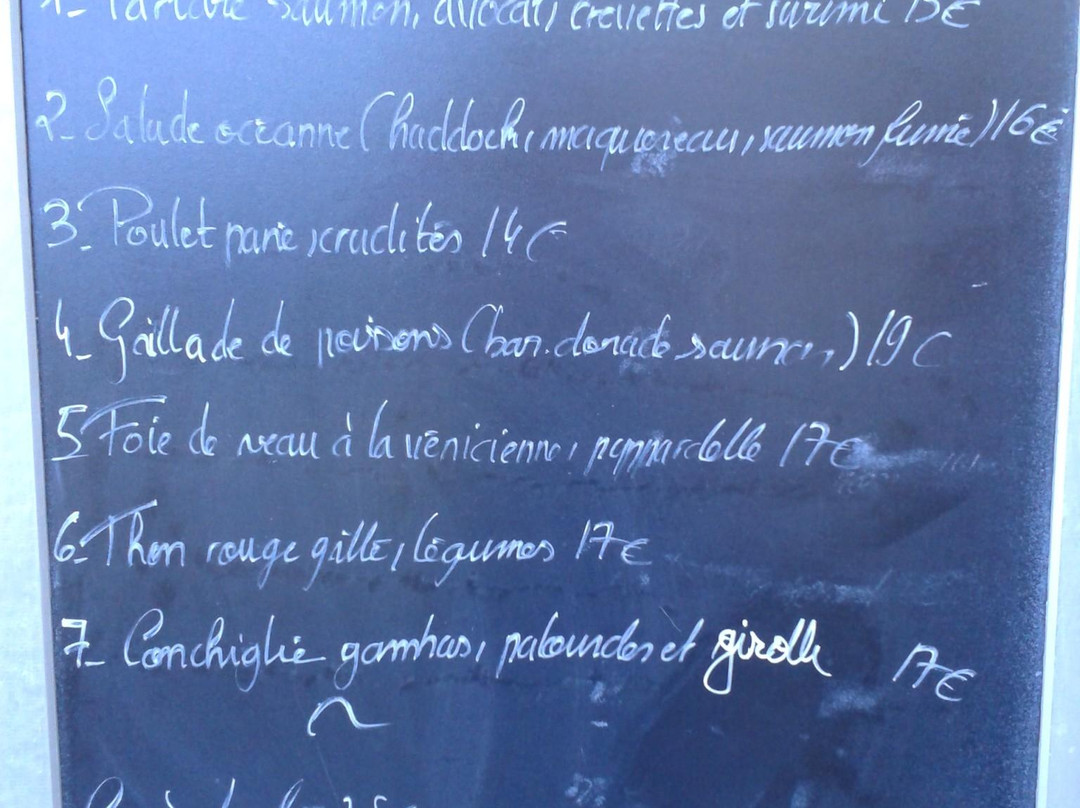 1- Tartare saumon, avocat, crevettes et surimi 15€
2- Salade océanne (haddock, maquereau, saumon fumé) 16€
3- Poulet pané, crudités 14€
4- Grillade de poissons (bar, dorade saumon,) 19€
5 Foie de veau à la vénicienne, pappardelle 17€
6- Thon rouge gillé, légumes 17€
7- Conchiglie gambas, palourdes et girolle 17€